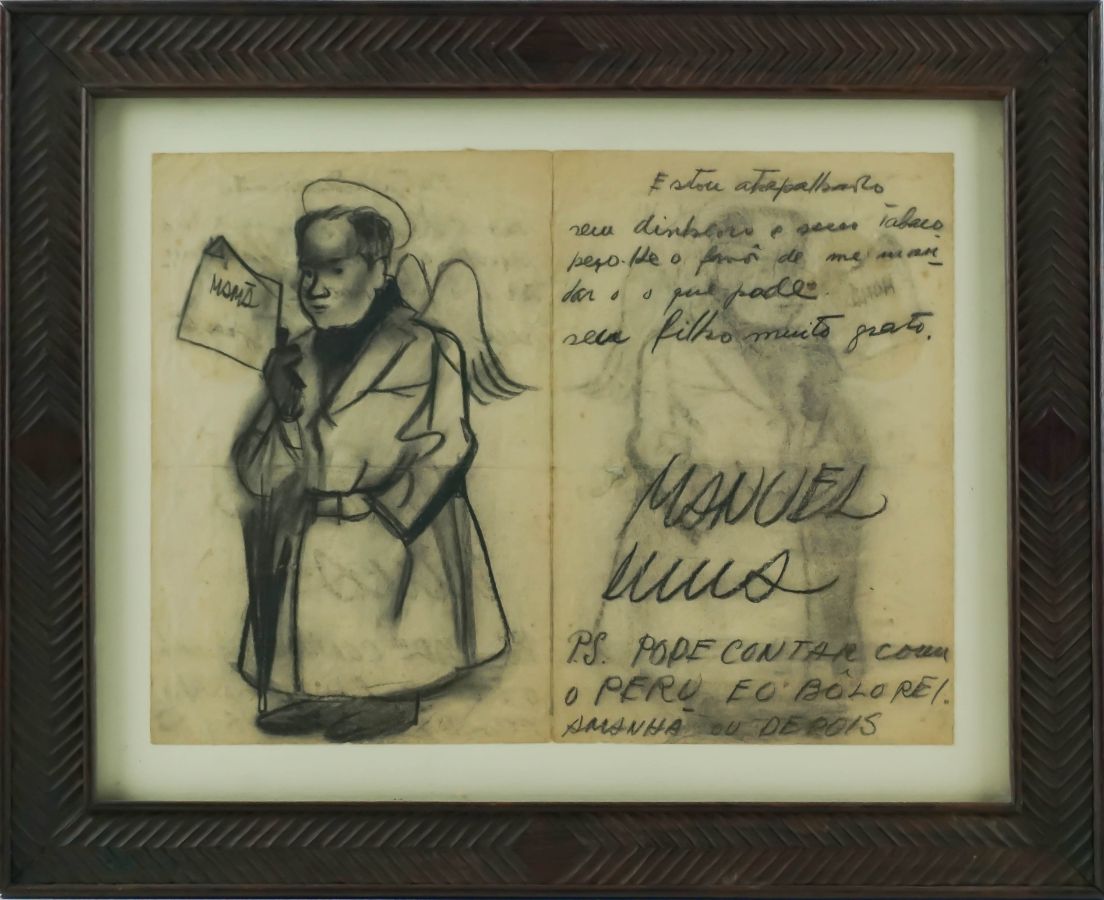 MAMÃ
Estou atrapalhado
sem dinheiro e sem Tabaco
peço-lhe o favôr de me man-
dar o o que pode.
seu filho muito grato.
MANUEL
P.S. PODE CONTAR com
o PERU EO BÔLO REI.
AMANHÃ OU DEPOIS